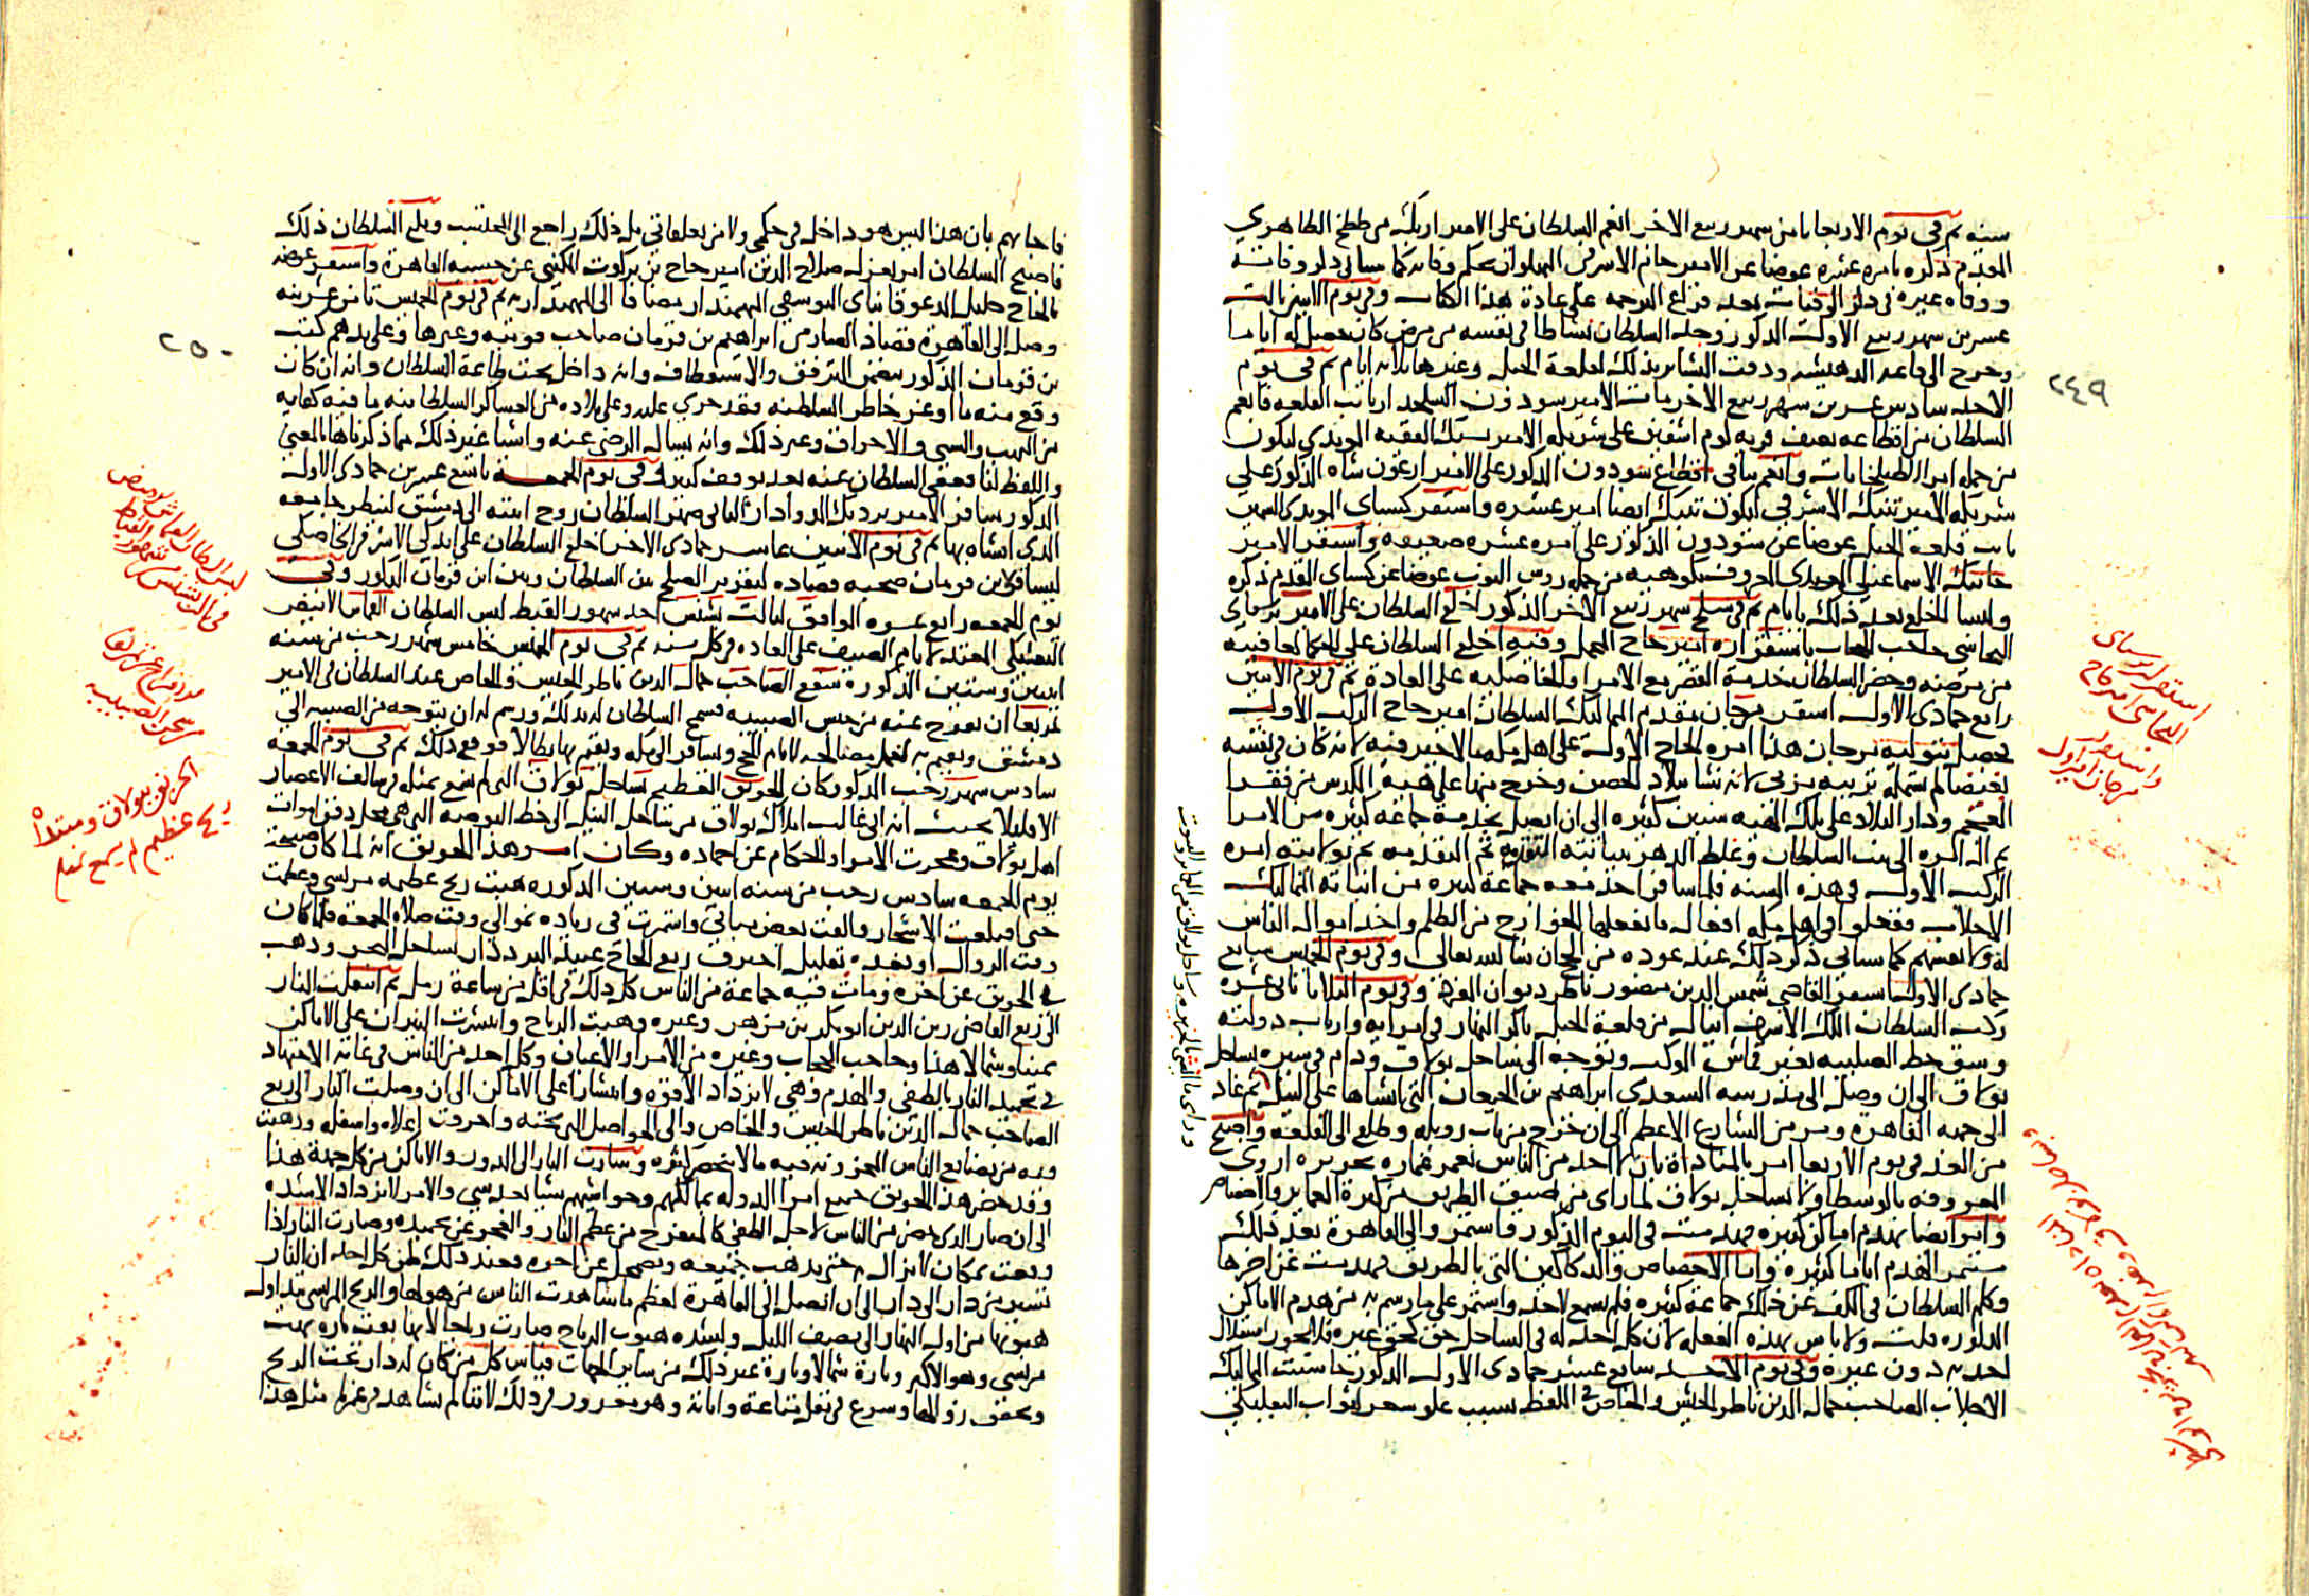 سنه ثم في يوم الاربعا ثامن شهر ربيع الاخر انعم السلطان على الامير ازبك من ططخ الظاهري
المقدم ذكره بامره عشره عوضا عن الامير جانم الاشرفي البهلوان بحكم وفاته كما سياتي ذكر وفاته
ووفاه غيره في ذكر الوفيات بعد فراغ الترجمه على عادة هذا الكتاب وفي يوم الاثنين ثالث
عشرين شهر ربيع الاول المذكور وجد السلطان نشاطا في نفسه من مرض كان حصل له اياما
وخرج الى قاعه الدهيشه ودقت البشاير بذلك بقلعة الجبل وغيرها ثلاثه ايام ثم في يوم
الاحد سادس عشرين شهر ربيع الاخر مات الامير سودون السلحدار نايب القلعه فانعم
السلطان من اقطاعه بنصف قريه كوم اشفين على شريكه الامير يشبك الفقيه المويدي ليكون
من جمله امرا الطبلخانات وانعم بباقي اقطاع سودون المذكور على الامير ارغون شاه المذكور على
شريكه الامير تنبك الاشرفي ليكون تنبك ايضا امير عشره واستقر كسباي المويدي السمين
نايب قلعة الجبل عوضا عن سودون المذكور على امره عشره ضعيفه واستقر الامير
جانبك الاسماعيلي المويدي المعروف بكوهيه من جمله روس النوب عوضا عن كسباي المقدم ذكره
ولبسا الخلع بعد ذلك بايام ثم في سلخ شهر ربيع الاخر المذكور اخلع السلطان على الامير برسباي
البجاسي حاجب الحجاب باستقراره امير حاج المحمل وفيه اخلع السلطان على الحكما لعافيته
من مرضه وحضر السلطان خدمة القصر مع الامرا والخاصكيه على العادة ثم في يوم الاثنين
رابع جمادى الاول استقر مرجان مقدم المماليك السلطان امير حاج الركب الاول
فحصل بتوليه مرجان هذا امره الحاج الاول على اهل مكه ما لا خير فيه لانه كان في نفسه
العجم ودار البلاد على تلك الهيه سنين كثيره الى ان اتصل بخدمة جماعه كثيره من الامرا
ثم اله امره الى بيت السلطان وغلط الدهر بنيابته التقدمه ثم التقدمه ثم بولايته امره
الركب الاول في هذه السنه فلما سافر اخذ معه جماعة كثيره من انياته المماليك
الاجلاب ففعلوا في اهل مكه افعال ما يفعلها الخوارج من الظلم واخذ اموال الناس
له ولانفسهم كما سياتي ذكر ذلك عند عوده من الحج ان شا الله تعالى وفي يوم الخميس سابع
جمادى الاول استقر القاضي شمس الدين منصور ناظر ديوان المفرد وفي يوم الثلاثا ثاني عشره
ركب السلطان الملك الاشرف اينال من قلعة الجبل باكر النهار في امرايه وارباب دولته
وشق خط الصليبه بغير قماش الموكب وتوجه الى ساحل بولاق ودام في سيره بساحل
بولاق الى ان وصل الى مدرسه السعدي ابراهيم بن الجيعان التي انشاها على النيل ثم عاد
الى جهه القاهرة ومر من الشارع الاعظم الى ان خرج من باب زويله وطلع الى القلعه واصبح
من الغد في يوم الاربعا امر بالمناداة بان لا احد من الناس يعمر عماره بجزيره اروى
المعروفه بالوسطا ولا بساحل بولاق لما راى من ضيق الطريق من كثرة العماير والاخصاص
وامر ايضا بهدم اماكن كثيره فهدمت في اليوم المذكور واستمر والي القاهرة بعد ذلك
مستمر الهدم اياما كثيره واما الاخصاص والدكاكين التي بالطريق فهدمت عن اخرها
وكلم السلطان في الكف عن ذلك جماعة كثيره فلم يسمع لاحد واستمر على ما رسم به من هدم الاماكن
المذكوره قلت ولا باس بهذه الفعله لان كل احد له في الساحل حق كحق غيره فلا يجوز استقلال
احد به دون غيره وفي يوم الاحد سابع عشر جمادى الاول المذكور حاشت المماليك
الاجلاب الصاحب جمال الدين ناظر الجيش والخاص في اللفظ بسبب علو سعر اثواب البعلبكي
٢٤٩
استقرار برسباي
البجاسي امير حاج
واستقرار
مرجان امير اول
فاجابهم بان هذا ليس هو داخل في حكمي ولا من تعلقاتي بل ذلك راجع الى المحتسب وبلغ السلطان ذلك
فاصبح السلطان امر بعزل صلاح الدين امير حاج بن بركوت المكيني عن حسبه القاهرة واستقر عوضه
بالحاج خليل المدعو قانباي اليوسفي المهمندار مضافا الى المهمنداريه ثم في يوم الخميس ثامن عشرينه
وصل الى القاهرة قصاد الصارمي ابراهيم بن قرمان صاحب قونيه وغيرها وعلى يدهم كتب
بن قرمان المذكور يتضمن الترفق والاستعطاف وانه داخل تحت طاعة السلطان وانه ان كان
وقع منه ما اوغر خاطر السلطنه فقد جرى عليه وعلى بلاده من العساكر السلطانيه ما فيه كفايه
من النهب والسبي والاحراق وغير ذلك وانه يسال الرضى عنه واشيا غير ذلك مما ذكرناها بالمعنى
واللفظ لنا فعفى السلطان عنه بعد توقف كبير وفي يوم الجمعه تاسع عشرين جمادى الاول
المذكور سافر الامير بردبك الدوادار الثاني صهر السلطان زوج ابنته الى دمشق لينظر جامعه
الذي انشاه بها ثم في يوم الاثنين عاشر جمادى الاخر اخلع السلطان على ايدكي الاشرفي الخاصكي
ليسافر لابن قرمان صحبه قصاده لتقرير الصلح بين السلطان وبين ابن قرمان المذكور وفي
يوم الجمعه رابع عشره الموافق لثالث بشنس احد شهور القبط لبس السلطان القماش الابيض
البعلبكي المعتد لايام الصيف على العاده في كل سنه ثم في يوم الخميس خامس شهر رجب من سنه
اثنين وستين المذكورة شفع الصاحب جمال الدين ناظر الجيش والخاص عند السلطان في الامير
تمربغا ان يفرج عنه من حبس الصبيبه فسمح السلطان له بذلك ورسم له ان يتوجه من الصبيبه الى
دمشق ويقيم به لعمل مصالحه لايام الحج ويسافر الى مكه ويقيم بها بطالا فوقع ذلك ثم في يوم الجمعه
سادس شهر رجب المذكور كان الحريق العظيم بساحل بولاق الذي لم نسمع بمثله في سالف الاعصار
الا قليلا بحيث انه اتى غالب املاك بولاق من ساحل النيل الى خط البوصه التي هي محل دفن اموات
اهل بولاق وعجزت الامرا والحكام عن اخماده وكان امر هذا الحريق انه لما كان صبيحة
يوم الجمعه سادس رجب من سنه اثنين وستين المذكوره هبت ريح عظيمه مريسي وعظمت
حتى اقلعت الاشجار والقت بعض مباني واستمرت في زياده ونمو الى وقت صلاه الجمعه فلما كان
وقت الزوال او بعده بقليل احترق ربع الحاج عبيد البرددار بساحل البحر وذهب
في الحريق عن اخره ومات فيه جماعة من الناس كل ذلك في اقل من ساعة رمل ثم انتقلت النار
الى ربع القاضي زين الدين ابو بكر بن مزهر وغيره وهبت الرياح وانتشرت النيران على الاماكن
يمينا وشمالا هذا وحاجب الحجاب وغيره من الامرا والاعيان وكل احد من الناس في غاية الاجتهاد
في تخميد النار بالطفي والهدم وهي لا تزداد الا قوه وانتشارا على الاماكن الى ان وصلت النار الى ربع
الصاحب جمال الدين ناظر الجيش والخاص والى الحواصل التي تحته واحرقت اعلاه واسفله وذهب
فيه من بضايع الناس المخزونه فيه ما لا ينحصر كثره وسارت النار الى الدور والاماكن من كل جهة هذا
وقد حضر هذا الحريق جميع امرا الدوله بمماليكهم وحواشيهم شيا بعد شي والامر لا يزداد الا شده
الى ان صار الذي حضر من الناس لاجل الطفي كالمتفرج من عظم النار والعجز عن تخميده وصارت النار اذا
وقعت بمكان لا تزال به حتى يذهب جميعه ويضمحل عن اخره فعند ذلك ظن كل احد ان النار
تسير من دار الى دار الى ان تصل الى القاهرة لعظم ما شاهدت الناس من هولها والريح المريسي تتداول
هبوبها من اول النهار الى نصف الليل ولشده هبوب الرياح صارت رياحا لانها بقت تاره تهب
مريسي وهو الاكثر وتارة شمالا وتارة غير ذلك من ساير الجهات فياس كل من كان له دار تحت الريح
وتحقق زوالها وسرع في نقل متاعه واثاثه وهو معذور في ذلك لاننا لم نشاهد في عمرنا مثل هذا
٢٥٠
لبس السلطان القماش الابيض
في ثالث بشنس من شهور القبط
الافراج عن تمربغا
من سجن الصبيبه
الحريق ببولاق ومبتداه
ريح عظيم لم يسمع بمثله